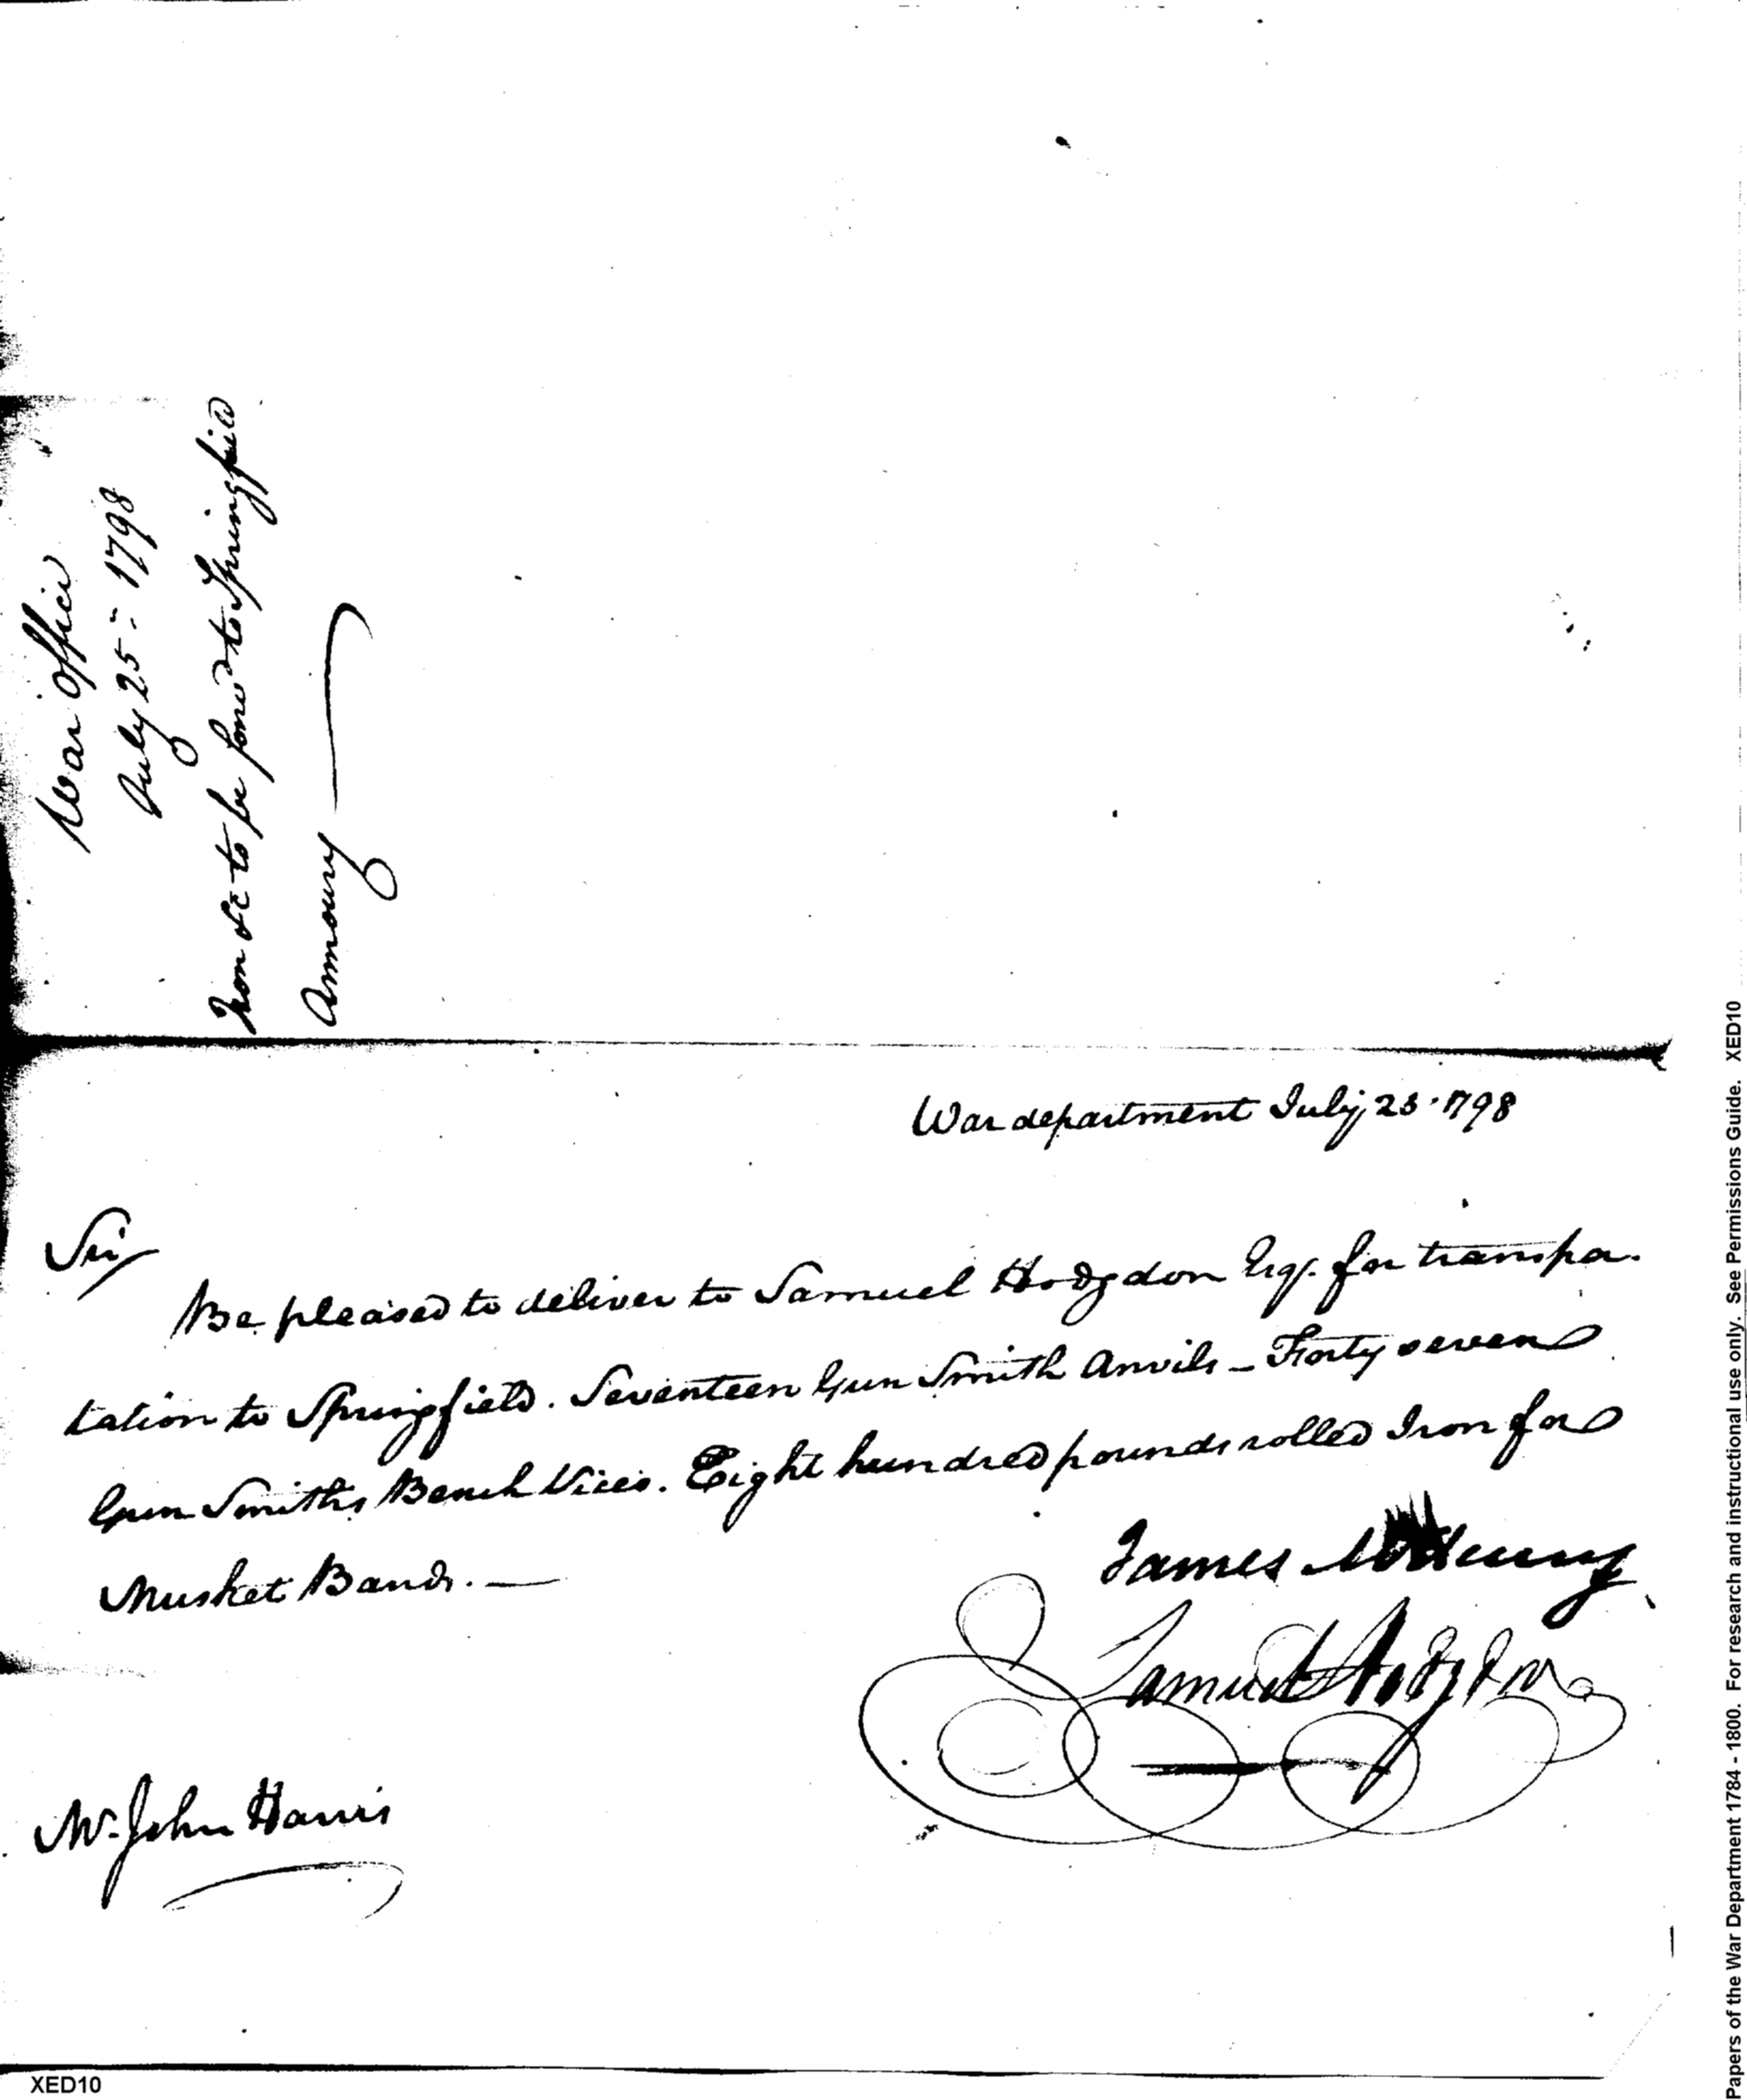 War Office
July 25 = 1798
Iron &c to be forwd to Springfield
Armoury
War department July, 25. 1798
Sir
Be pleased to deliver to Samuel Hodgdon Esqr. for transpor-
tation to Springfield. Seventeen Gun Smith Anvils - Forty seven
Gun Smiths Bench Vices. Eight hundred pounds rolled Iron for
Musket Bands. —
James McHenry
Samuel Hodgdon
Mr. John Harris
XED10
Papers of the War Department 1784 - 1800. For research and instructional use only. See Permissions Guide. XED10